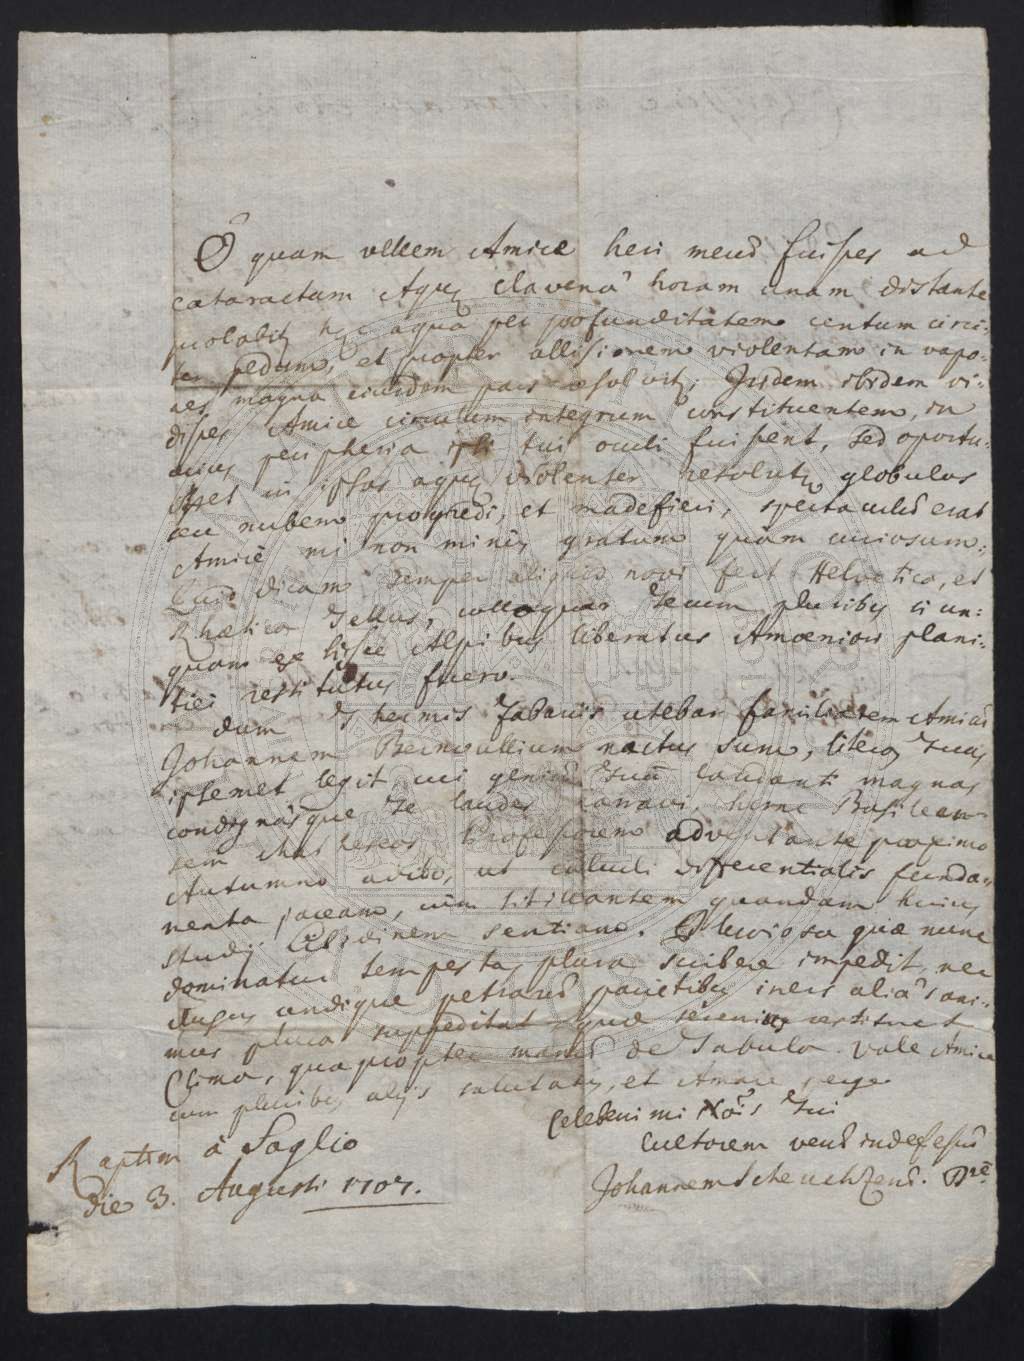 O quam vellem Amice heri mecū fuisses ad
cataractam Aquę clavenâ horam unam distante
prolabitᵘʳ hęc aqua per profunditatem centum circi-
ter pedum, et propter allisionem violentam in vapo-
res magna eiusdem pars resolvitᵘʳ; Iridem ibidem vi-
disses Amice circulum integrum constituentem, in
cuius peripheria ipsi tui oculi fuissent, sed oportu-
isset in ipsos aquę violenter resolutę globulos
ceu nubem progredi, et madefieri, spectaculū erat
Amice mi non minus gratum quàm curiosum;
Quid dicam semper aliquid novi fert Helvetica, et
Rhætica Tellus, colloquar tecum pluribus si un-
quam ex hisce Alpibus liberatus Amœniori plani-
tiei restitutus fuero.
dum Thermis Fabariis utebar familiarem Amicū
Johannem Bernoullium nactus sum, literas Tuas
ipsemet legit cui genium Tuū laudanti magnas
condignasque Te laudes narravi. hinc Basileam
sem Matheseos Professorem adventante proximo
Autumno adibo, ut calculi differentialis funda-
menta jaceam, cùm titillantem quandam huius
studij Libidinem sentiam. Pluviosa quæ nunc
dominatur tempestas plura scribere impedit, nec
Angus undique petrarū parietibus iners aliàs ani-
mus plura suppeditat, quæ serenius restituet
Clima, quapropter manū de Tabula. Vale Amice
cum pluribus alijs salutatus, et Amare perge
Celeberrimi Nôis Tui
Cultorem verū indefessū
Johannem Scheuchzerū.
Raptim â Soglio
die 3. Augusti 1707.